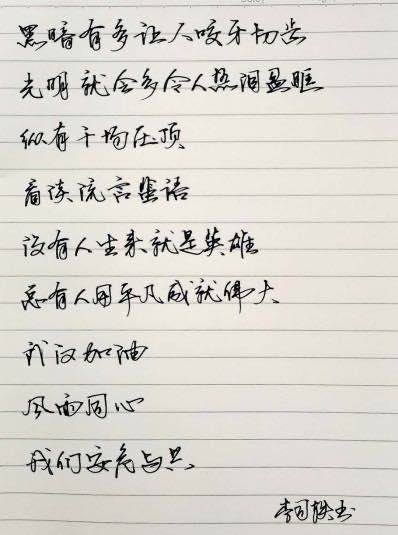 黑暗有多让人咬牙切齿
光明就会多令人热泪盈眶
纵有千场压顶
看淡流言蜚语
没有人生来就是英雄
总有人用平凡成就伟大
武汉加油
风雨同心
我们安危与共
书